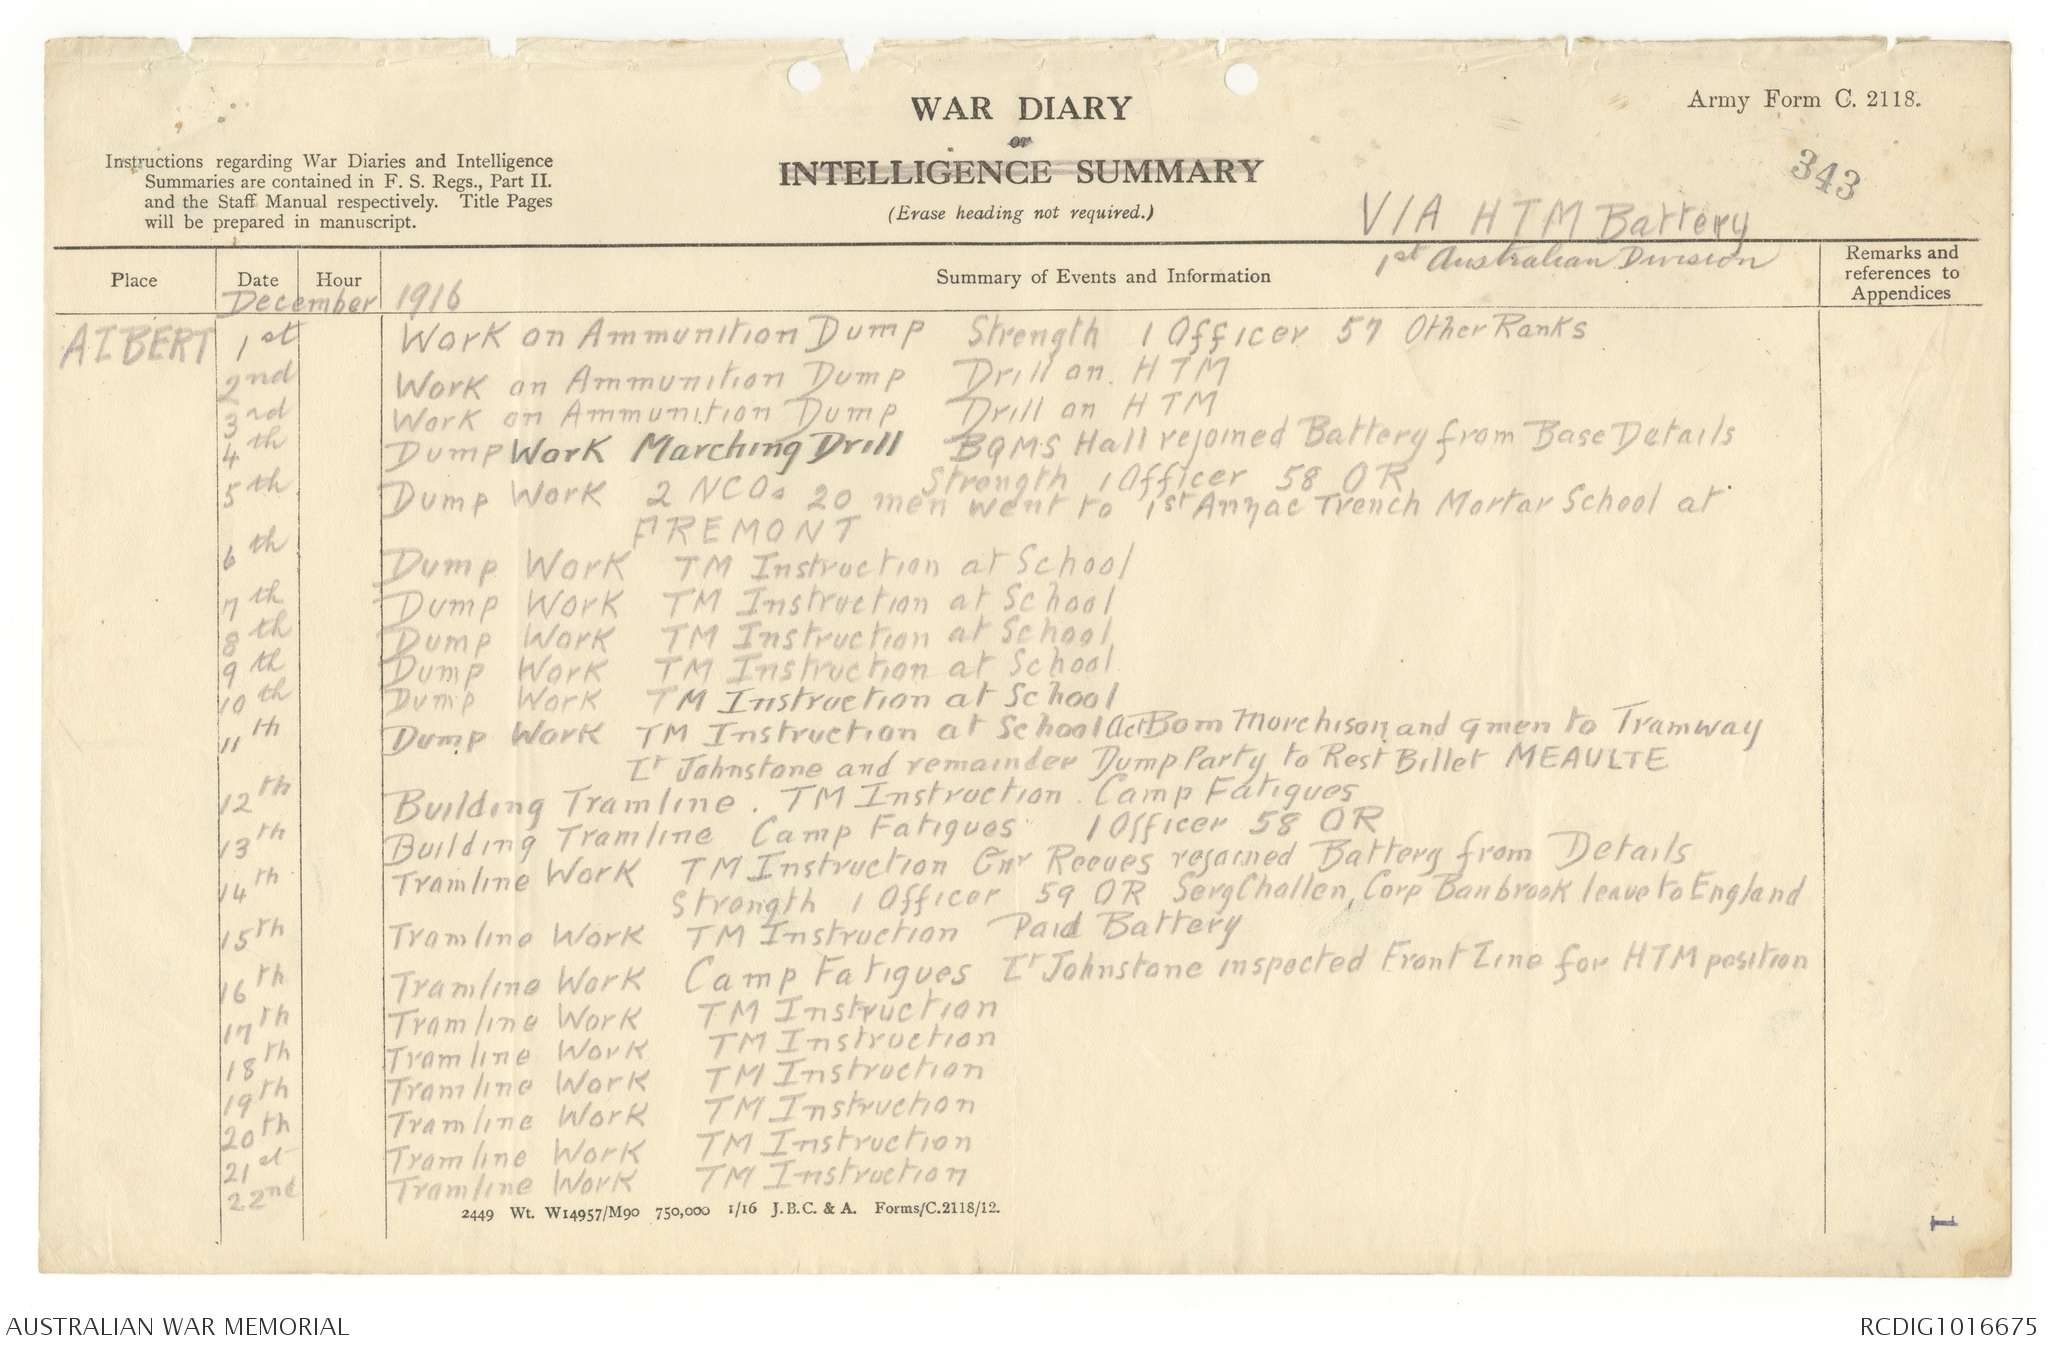 WAR DIARY
or
INTELLIGENCE SUMMARY
(Erase heading not required.)
Army Form C. 2118.
343
Instructions regarding War Diaries and Intelligence
Summaries are contained in F. S. Regs., Part II.
and the Staff Manual respectively. Title Pages
will be prepared in manuscript.
V/A HTM Battery
1st Australian Division
Place Date Hour Summary of Events and Information Remarks and references to Appendices
December 1916
ALBERT 1st Work on Ammunition Dump Strength 1 Officer 57 Other Ranks
2nd Work on Ammunition Dump Drill on HTM
3rd Work on Ammunition Dump Drill on HTM
4th Dump Work Marching Drill BQMS Hall rejoined Battery from Base Details
Strength 1 Officer 58 OR
5th Dump Work 2 NCOs 20 men went to 1st Anzac Trench Mortar School at
FREMONT
6th Dump Work TM Instruction at School
7th Dump Work TM Instruction at School
8th Dump Work TM Instruction at School
9th Dump Work TM Instruction at School
10th Dump Work TM Instruction at School
11th Dump Work TM Instruction at School Act Bom Morchison and 9 men to Tramway
Lt Johnstone and remainder Dump Party to Rest Billet MEAULTE
12th Building Tramline. TM Instruction. Camp Fatigues
13th Building Tramline Camp Fatigues 1 Officer 58 OR
14th Tramline Work TM Instruction Gnr Reeves rejoined Battery from Details
Strength 1 Officer 59 OR Serg Challen, Corp Banbrook leave to England
15th Tramline Work TM Instruction Paid Battery
16th Tramline Work Camp Fatigues Lt Johnstone inspected Front Line for HTM position
17th Tramline Work TM Instruction
18th Tramline Work TM Instruction
19th Tramline Work TM Instruction
20th Tramline Work TM Instruction
21st Tramline Work TM Instruction
22nd Tramline Work TM Instruction
2449 Wt. W14957/M90 750,000 1/16 J.B.C. & A. Forms/C.2118/12.
1
AUSTRALIAN WAR MEMORIAL RCDIG1016675